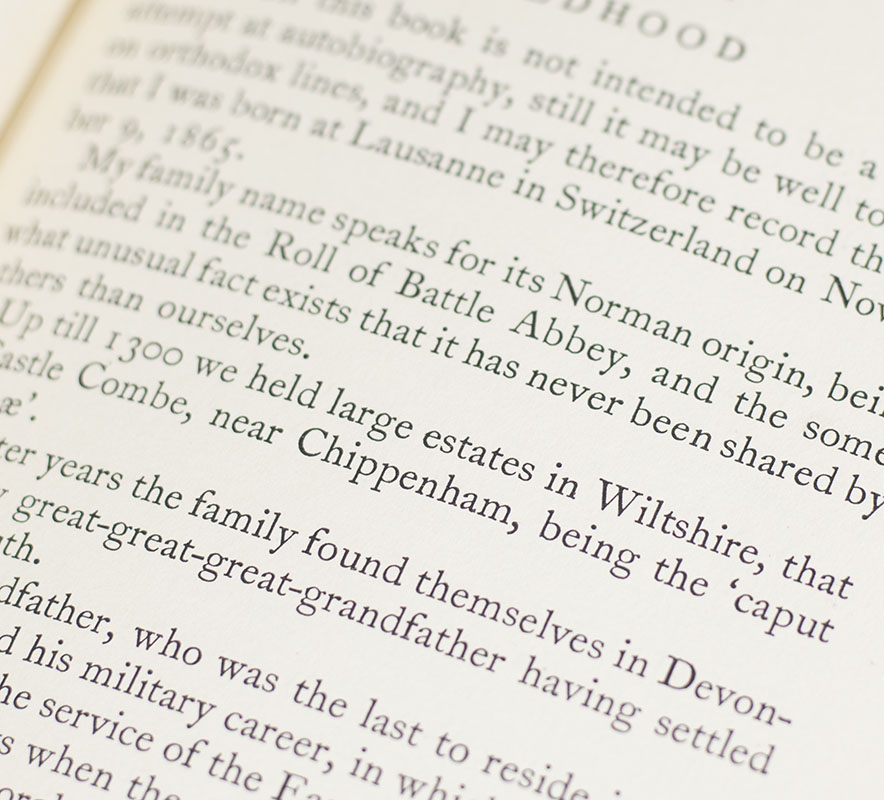 DHOOD
this book is not intended to be a
attempt at autobiography, still it may be well to
on orthodox lines, and I may therefore record th
that I was born at Lausanne in Switzerland on Nov
ber 9, 1865.
My family name speaks for its Norman origin, bein
included in the Roll of Battle Abbey, and the some
what unusual fact exists that it has never been shared by
thers than ourselves.
Up till 1300 we held large estates in Wiltshire, that
Castle Combe, near Chippenham, being the ‘caput
æ’.
ter years the family found themselves in Devon-
great-great-great-grandfather having settled
th.
dfather, who was the last to reside
d his military career, in whic
he service of the Ea
s when the